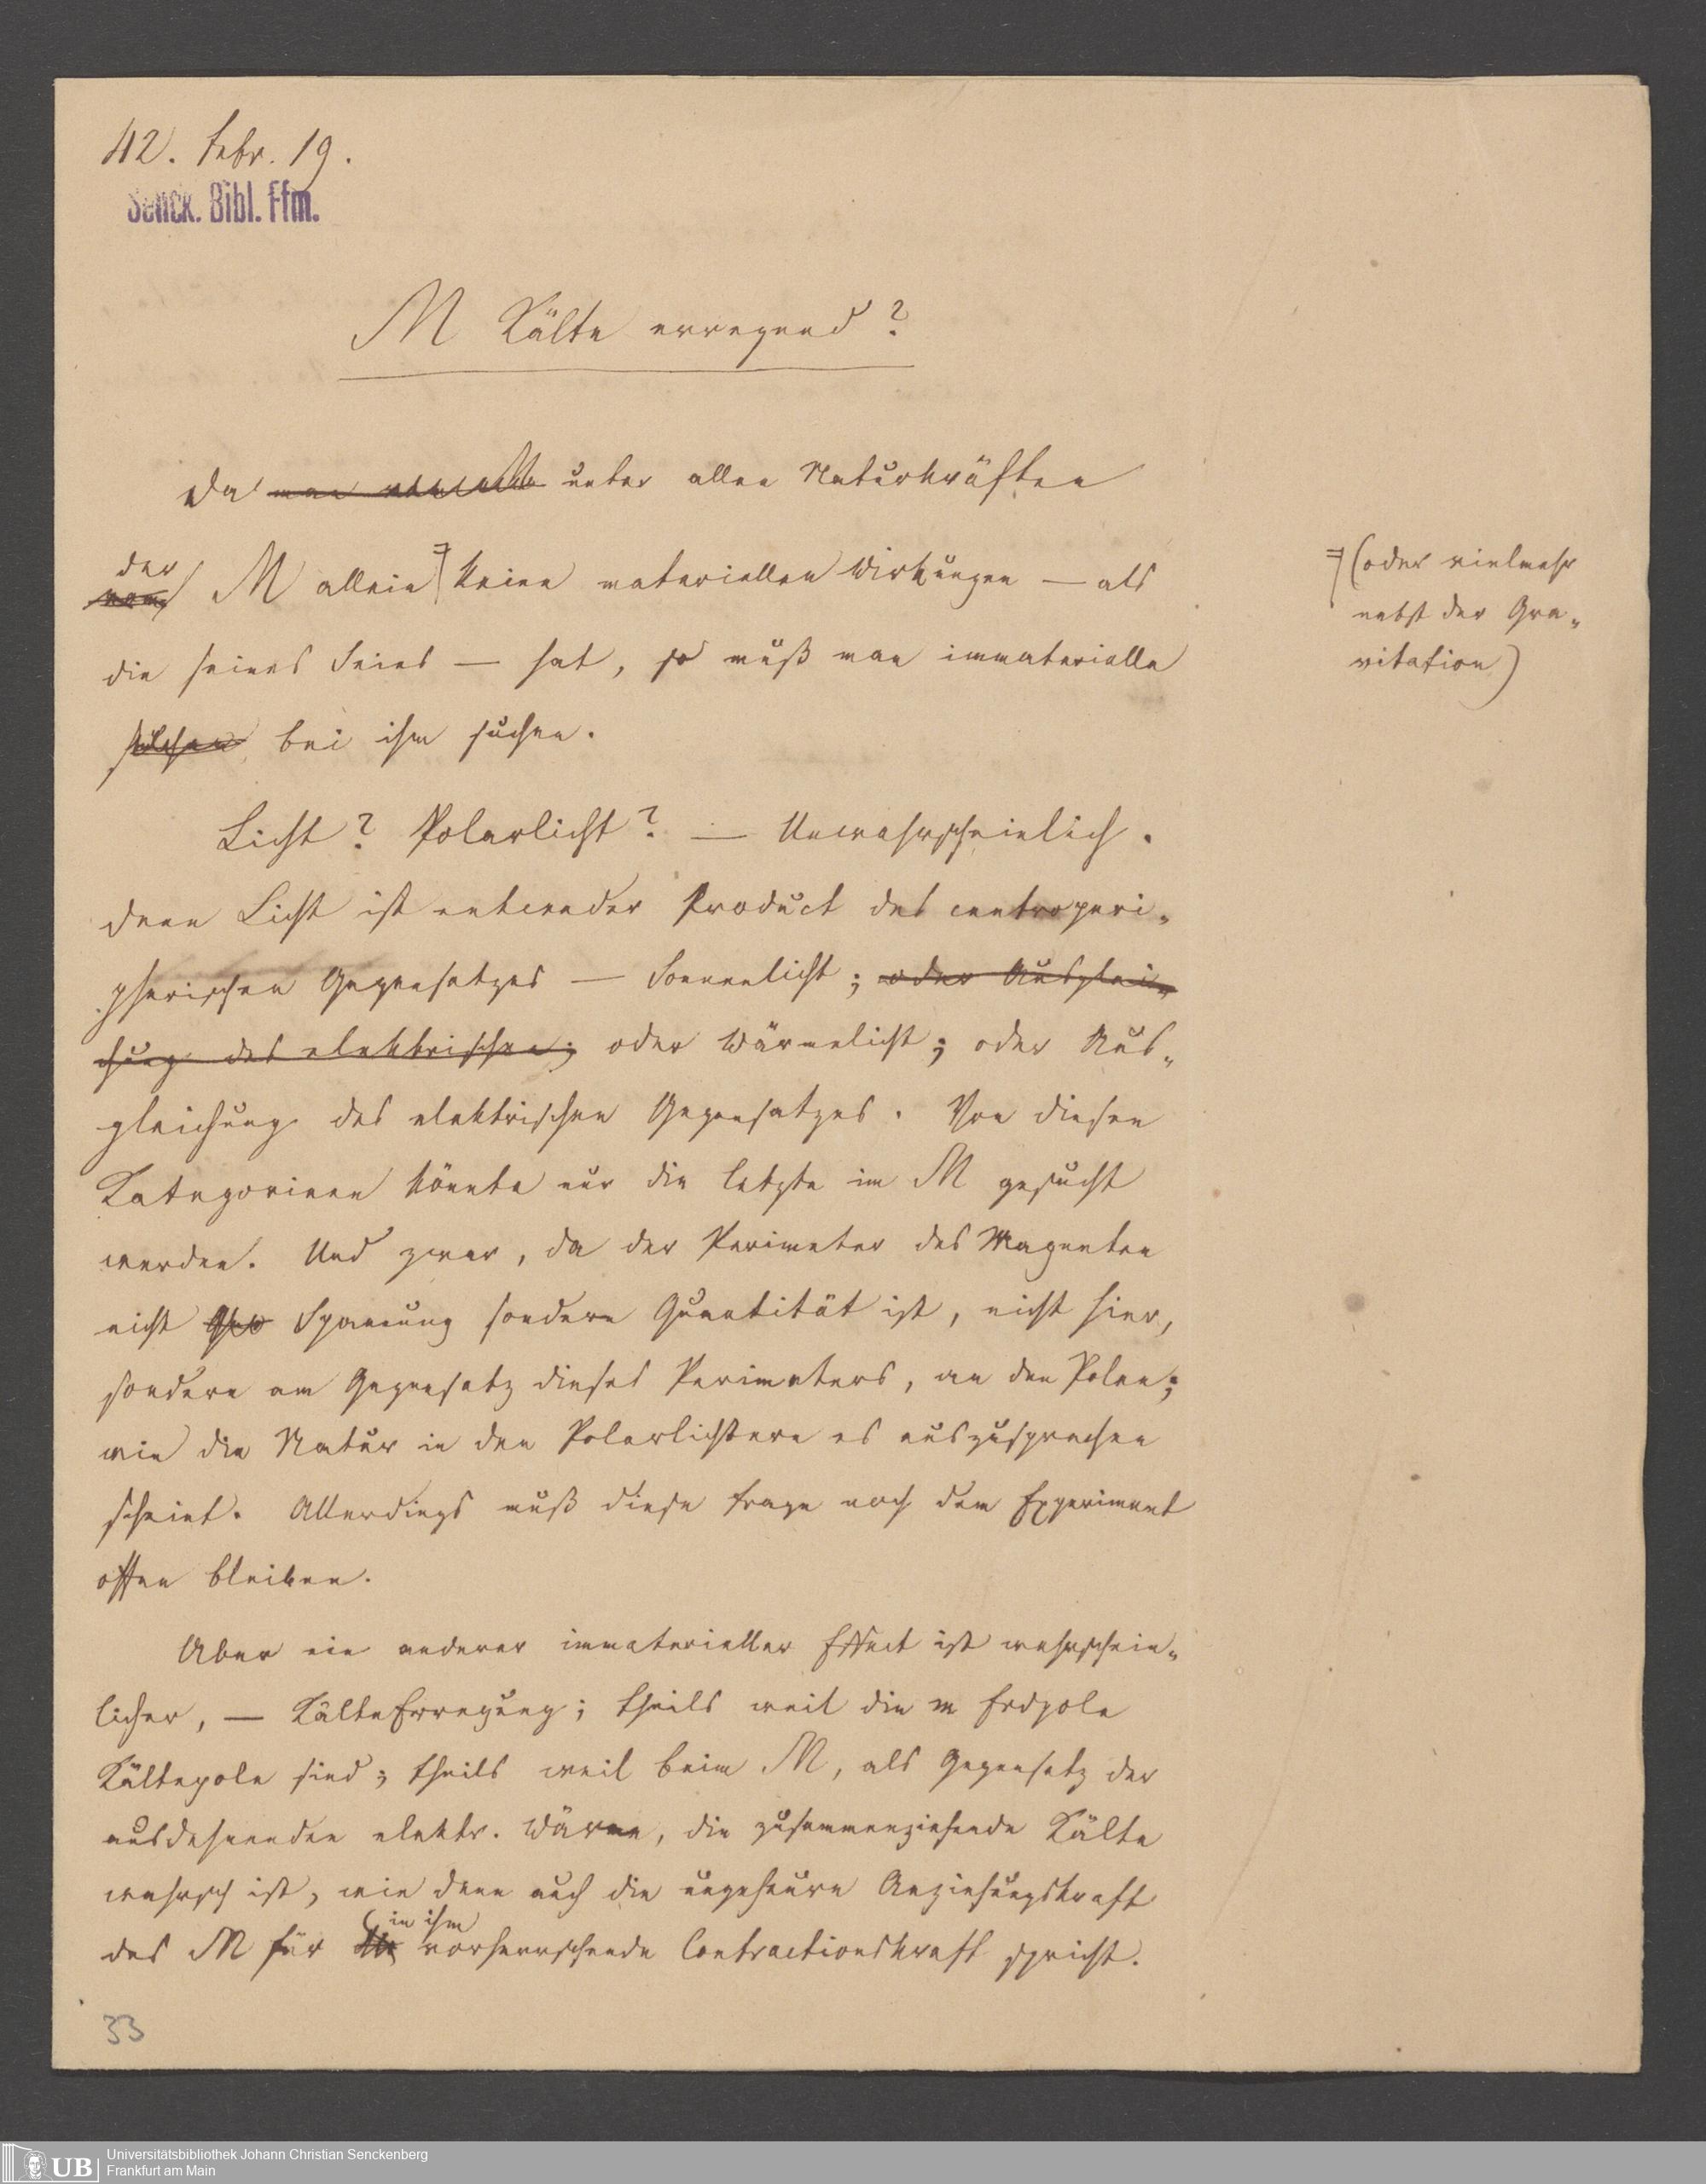 42. Febr. 19.
Senck. Bibl. Ffm.
M Kälte erregend?
Da unter allen Naturkräften
der M allein keine materiellen Wirkungen — als
(oder vielmehr
nebst der Gra-
vitation)
die seines Seins — hat, so muß man immaterielle
bei ihm suchen.
Licht? Polarlicht? — Unwahrscheinlich.
denn Licht ist entweder Product des centroperi-
pherischen Gegensatzes — Sonnenlicht; oder Ausglei-
chung des elektrischen; oder Wärmelicht; oder Aus-
gleichung des elektrischen Gegensatzes. Von diesen
Kategorieen könnte nur die letzte im M gesucht
werden. Und zwar, da der Perimeter des Magneten
nicht Spannung sondern Quantität ist, nicht hier,
sondern am Gegensatz dieses Perimeters, an den Polen;
wie die Natur in den Polarlichtern es auszusprechen
scheint. Allerdings muß diese Frage noch dem Experiment
offen bleiben.
Aber ein anderer immaterieller Effect ist wahrschein-
licher, — Kälte Erregung; theils weil die m Erdpole
Kältepole sind; theils weil beim M, als Gegensatz der
ausdehnenden elektr. Wärme, die zusammenziehende Kälte
wahrsch ist, wie denn auch die ungeheure Anziehungskraft
in ihm
des M für vorherrschende Contractionskraft spricht.
33
UB
Universitätsbibliothek Johann Christian Senckenberg
Frankfurt am Main